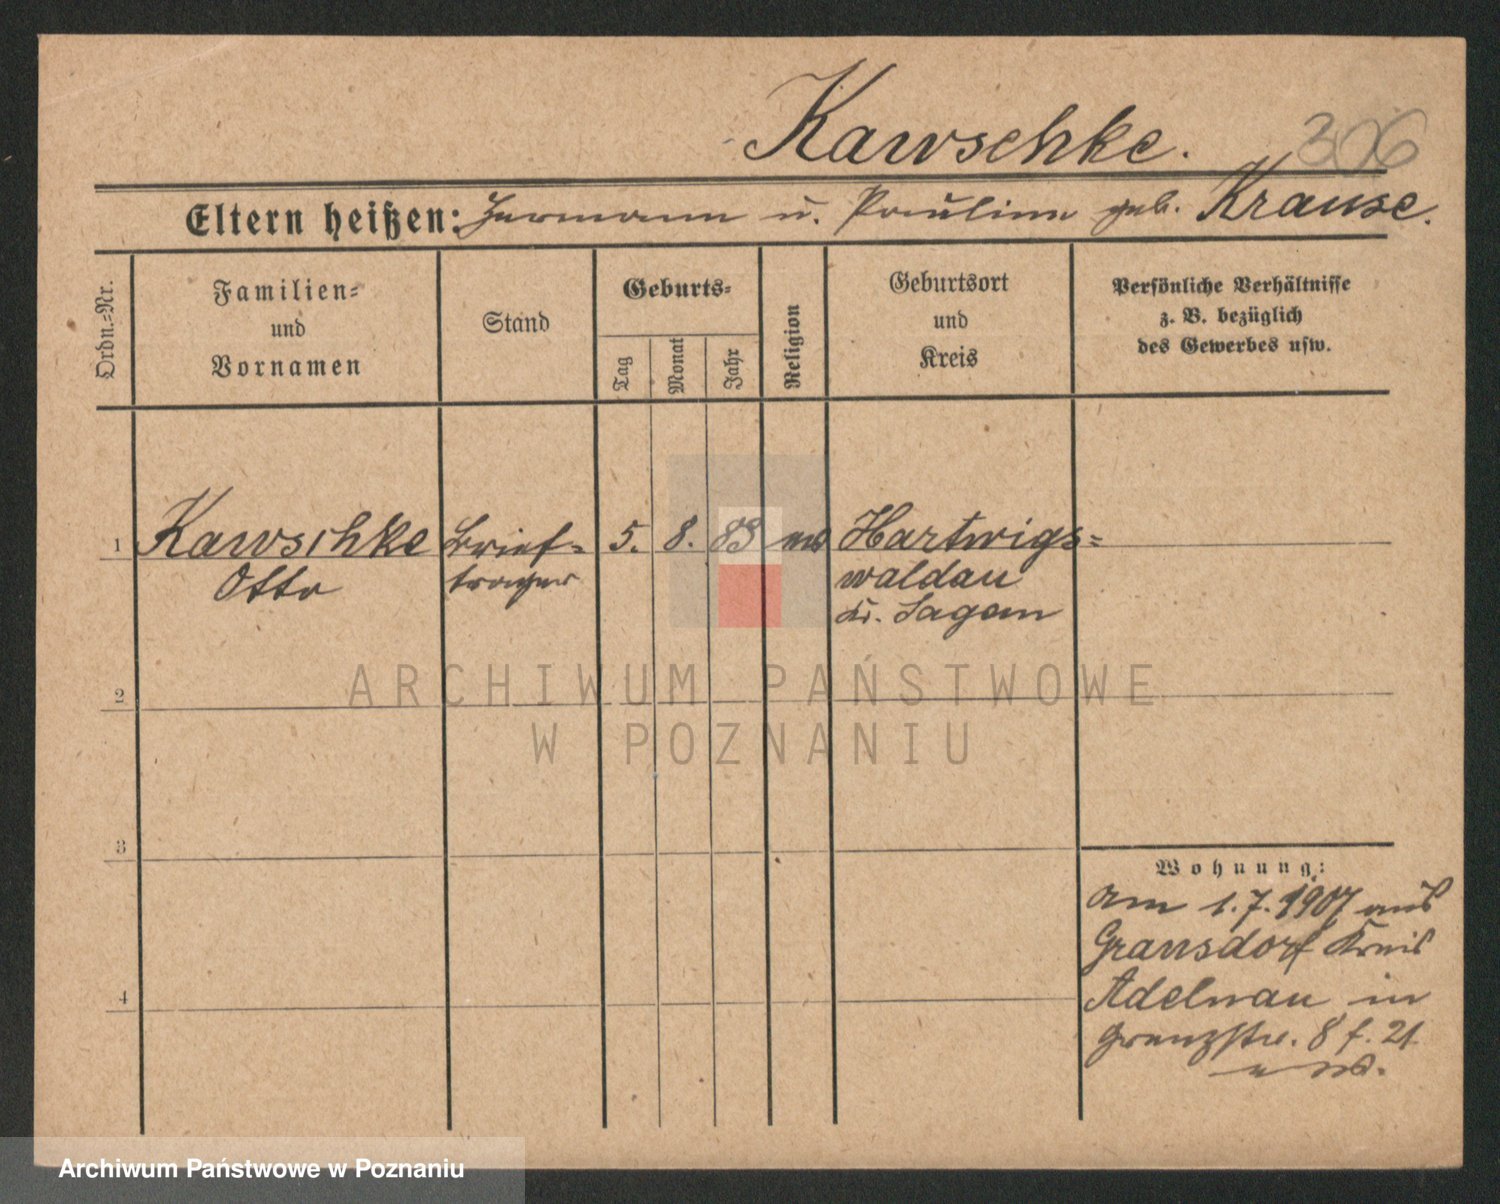 Kawschke. 306
Eltern heißen: Hermann u. Pauline geb. Krause.
Ordn.=Nr.
Familien=
und
Vornamen
Stand
Geburts=
Tag
Monat
Jahr
Religion
Geburtsort
und
Kreis
Persönliche Verhältnisse
z. B. bezüglich
des Gewerbes usw.
1 Kawschke Brief= 5. 8. 83 Hartwigs=
Otto träger waldau
Kr. Sagan
2
3
4
Wohnung:
Am 1.7.1907 aus
Kreis
Adelnau in
Grenzstr. 8 f. 21
ARCHIWUM PAŃSTWOWE
W POZNANIU
Archiwum Państwowe w Poznaniu